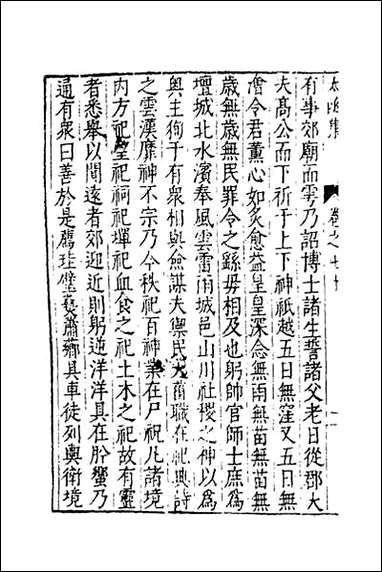 太函集 卷之七十
有事郊廟而雩乃詔博士諸生誓諸父老日從郡大
夫髙公而下祈于上下神祇越五日無霪又五日無
澮令君薰心如炙愈益皇皇深念無雨無苗無苗無
歳無歳無民罪令之繇毋相及也躬帥官師士庶為
壇城北水濱奉風雲雷雨城邑山川社稷之神以為
輿主徇于有衆相與僉謀夫禦民大菑職在祀典詩
之雲漢靡神不宗乃令秩祀百神業在尸祝凡諸境
内方祀望祀祠祀墠祀血食之祀土木之祀故有靈
者悉舉以間遠者郊迎近則躬逆洋洋具在肸蠁乃
通有衆曰善於是薦珪璧蓺蕭薌具車徒列輿衛境